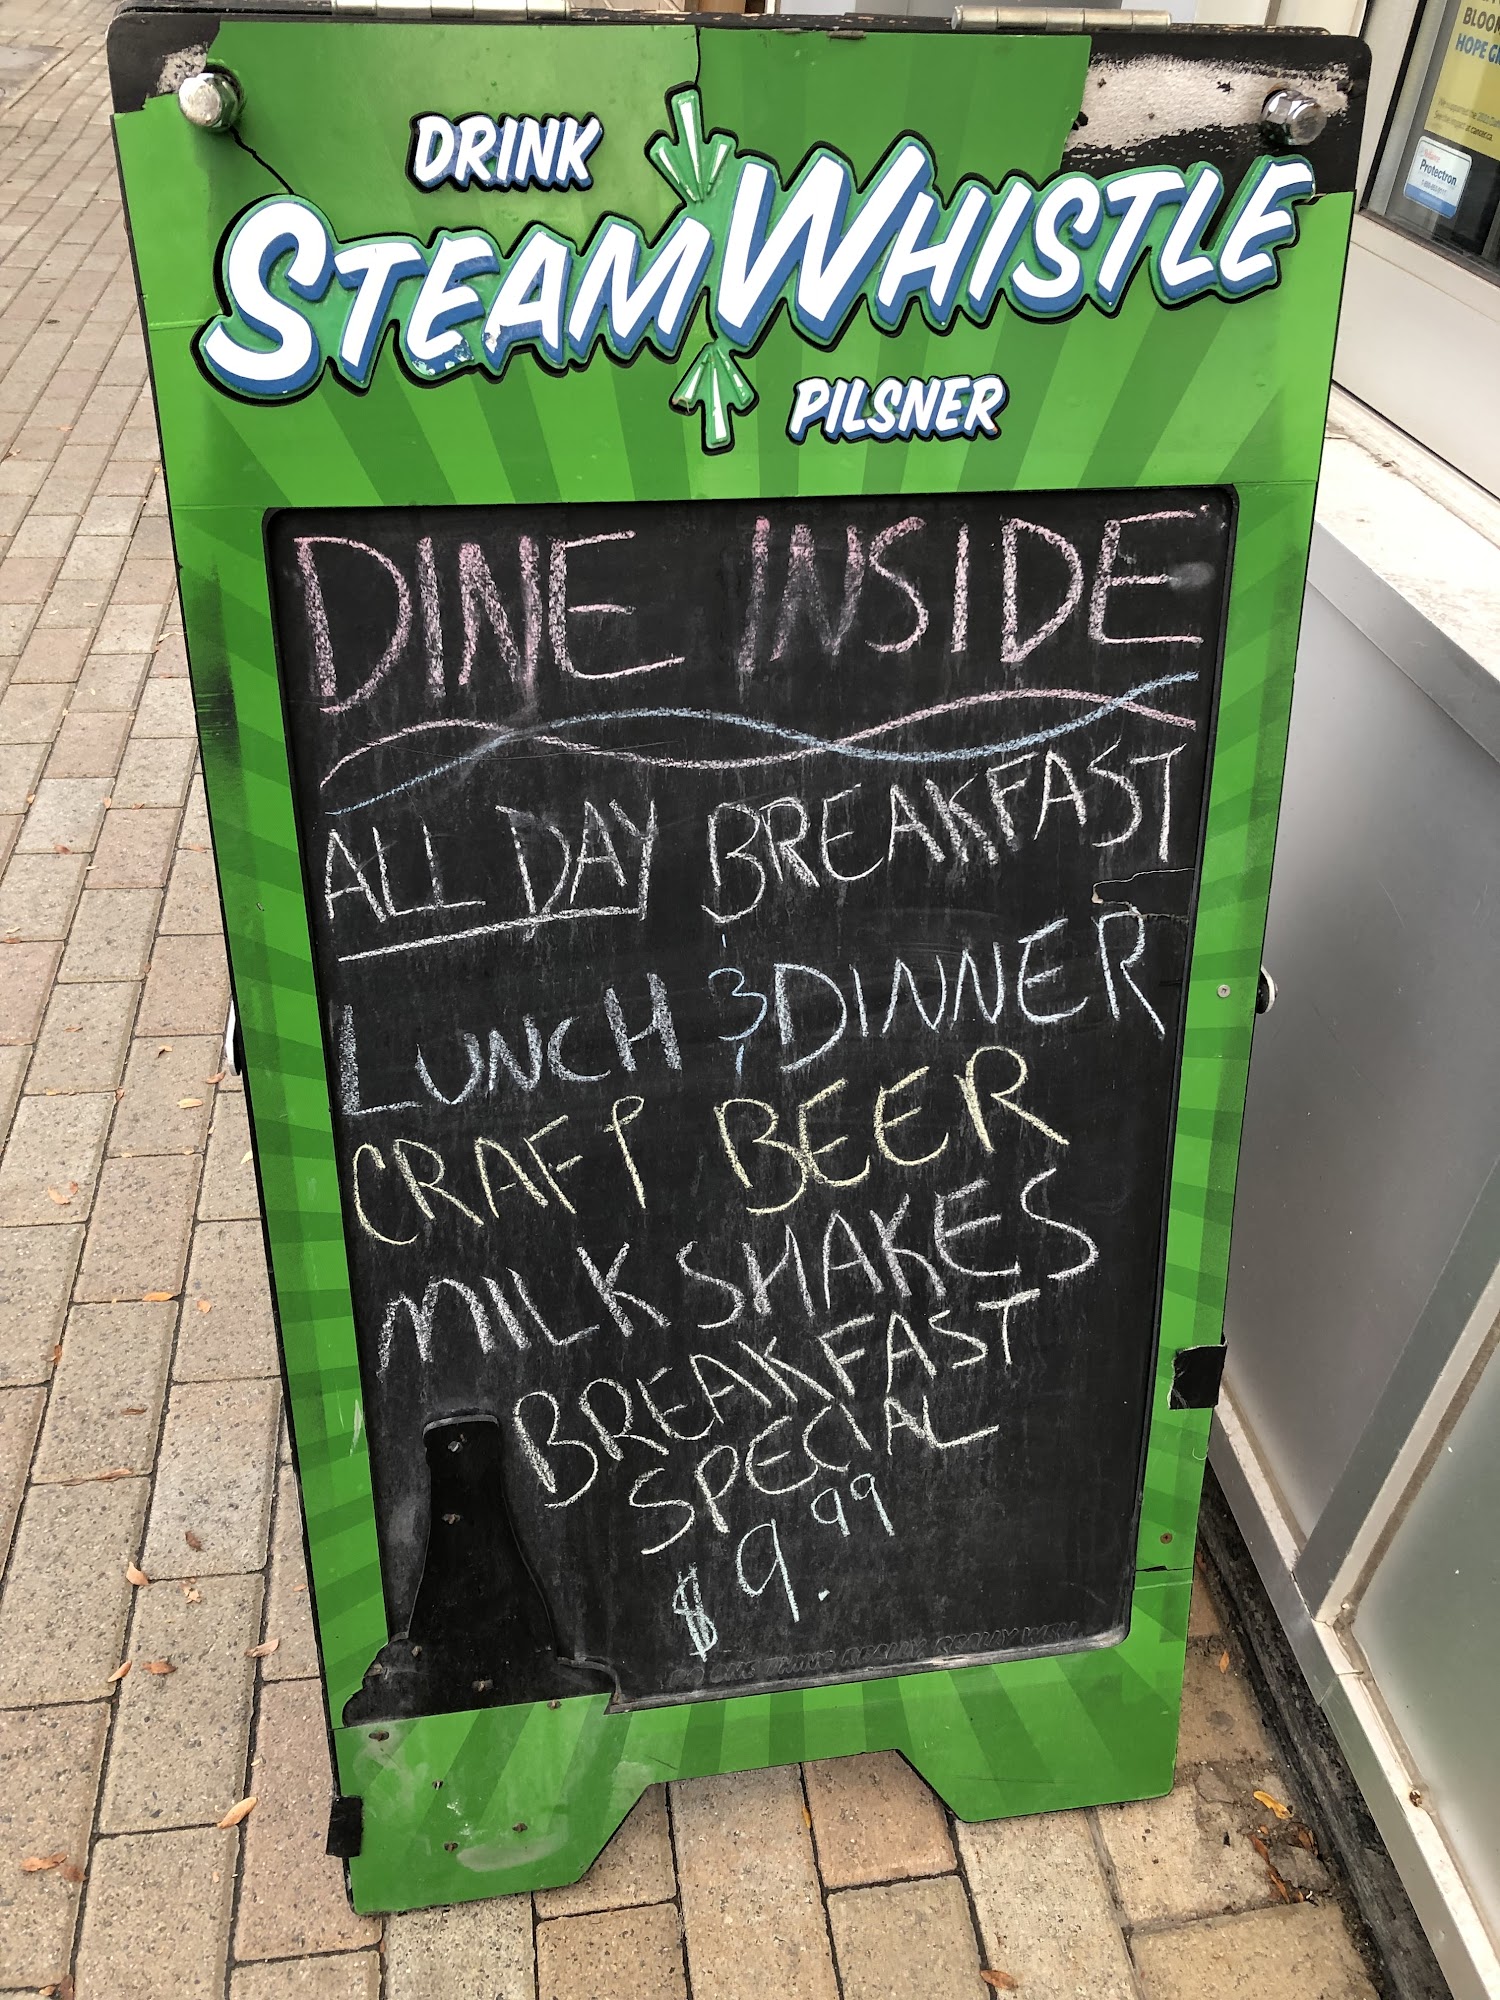 DRINK
STEAMWHISTLE
PILSNER
DINE INSIDE
ALL DAY BREAKFAST
LUNCH & DINNER
CRAFT BEER
MILKSHAKES
BREAKFAST
SPECIAL
$9.99
REALLY, REALLY WELL
BLOOM
HOPE
Protectron